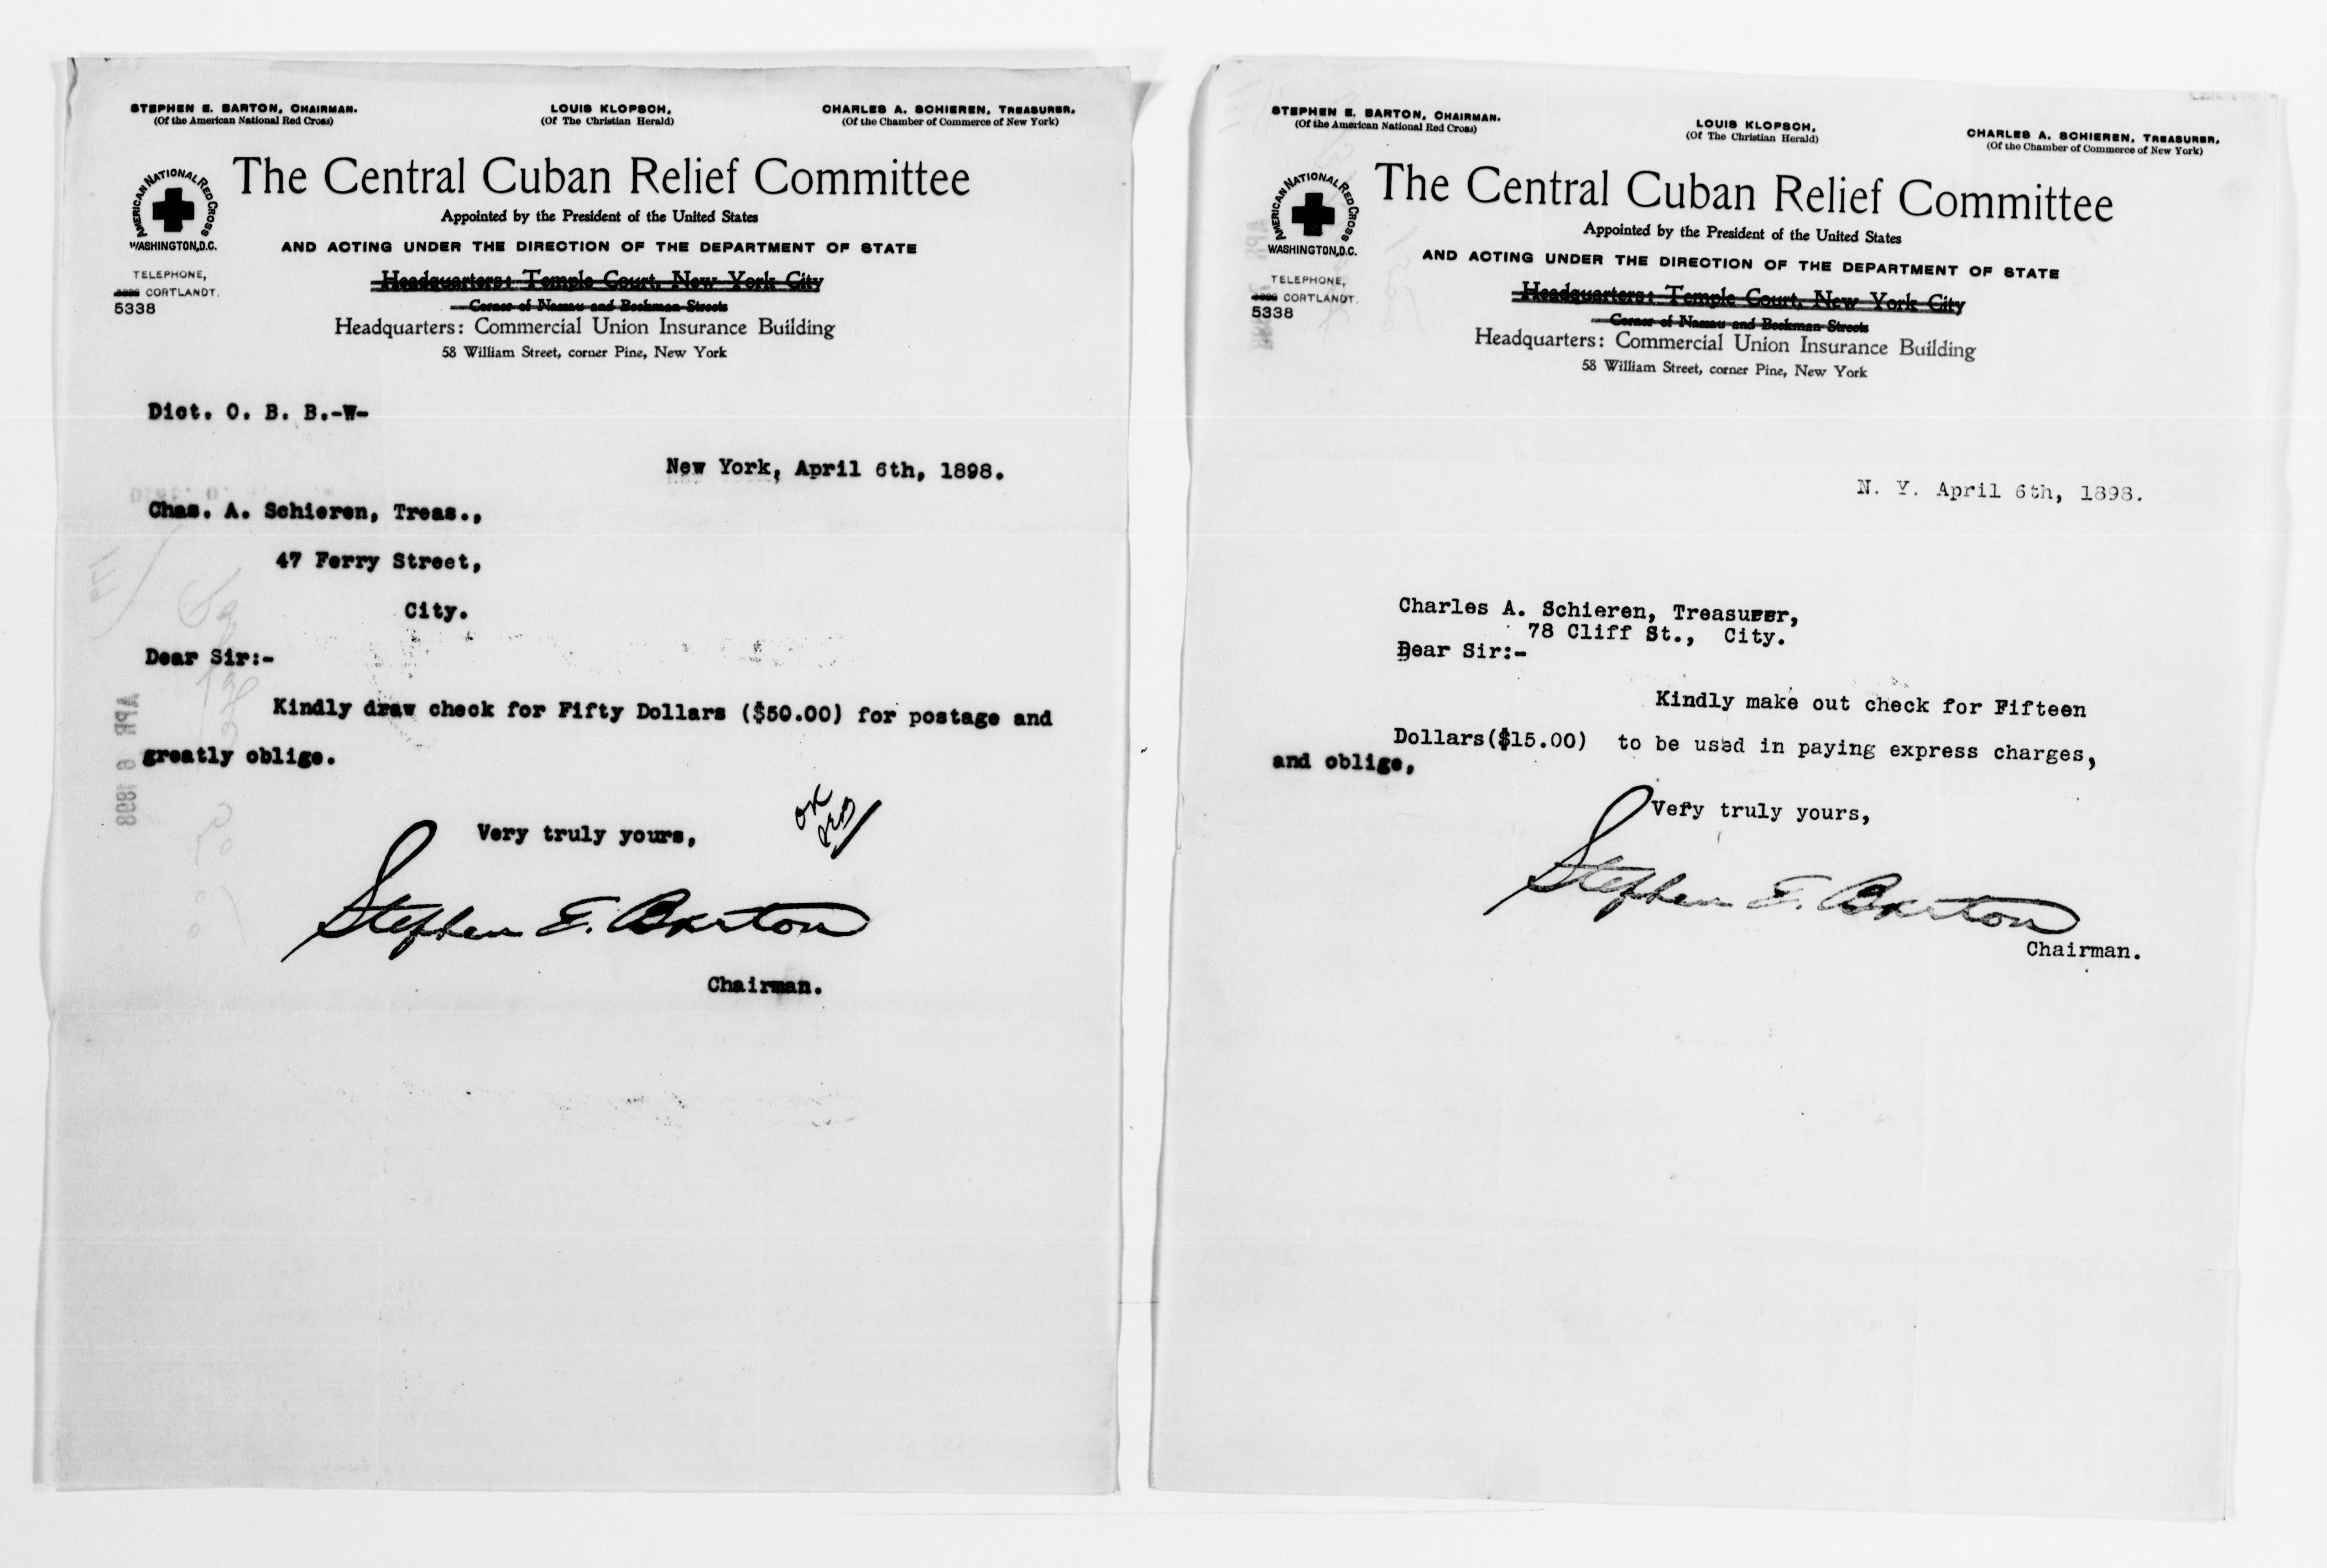 STEPHEN E. BARTON, CHAIRMAN.
(Of the American National Red Cross)
LOUIS KLOPSCH,
(Of The Christian Herald)
CHARLES A. SCHIEREN, TREASURER.
(Of the Chamber of Commerce of New York)
AMERICAN NATIONAL RED CROSS
WASHINGTON, D.C.
The Central Cuban Relief Committee
Appointed by the President of the United States
AND ACTING UNDER THE DIRECTION OF THE DEPARTMENT OF STATE
TELEPHONE,
CORTLANDT.
5338
Headquarters: Temple Court, New York City
Corner of Nassau and Beekman Streets
Headquarters: Commercial Union Insurance Building
58 William Street, corner Pine, New York
Dict. O. B. B.-W-
New York, April 6th, 1898.
Chas. A. Schieren, Treas.,
47 Ferry Street,
City.
Dear Sir:-
Kindly draw check for Fifty Dollars ($50.00) for postage and
greatly oblige.
Very truly yours,
OK
Stephen E. Barton
Chairman.
APR 6 1898
STEPHEN E. BARTON, CHAIRMAN.
(Of the American National Red Cross)
LOUIS KLOPSCH,
(Of The Christian Herald)
CHARLES A. SCHIEREN, TREASURER.
(Of the Chamber of Commerce of New York)
AMERICAN NATIONAL RED CROSS
WASHINGTON, D.C.
The Central Cuban Relief Committee
Appointed by the President of the United States
AND ACTING UNDER THE DIRECTION OF THE DEPARTMENT OF STATE
TELEPHONE,
CORTLANDT.
5338
Headquarters: Temple Court, New York City
Corner of Nassau and Beekman Streets
Headquarters: Commercial Union Insurance Building
58 William Street, corner Pine, New York
N. Y. April 6th, 1898.
Charles A. Schieren, Treasurer,
78 Cliff St., City.
Dear Sir:-
Kindly make out check for Fifteen
Dollars($15.00) to be used in paying express charges,
and oblige,
Very truly yours,
Stephen E. Barton
Chairman.